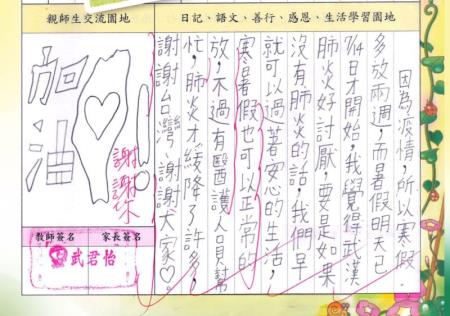 日記、語文、善行、感恩、生活學習園地
因為疫情，所以寒假
多放兩週，而暑假明天已
7/14日才開始，我覺得武漢
肺炎好討厭，要是如果
沒有肺炎的話，我們早
就可以過著安心的生活，
寒暑假也可以正常的
放，不過有醫護人員幫
忙，肺炎才緩降了許多，
謝謝台灣，謝謝大家♡。
親師生交流園地
加油!
謝謝你
教師簽名
家長簽名
武君怡